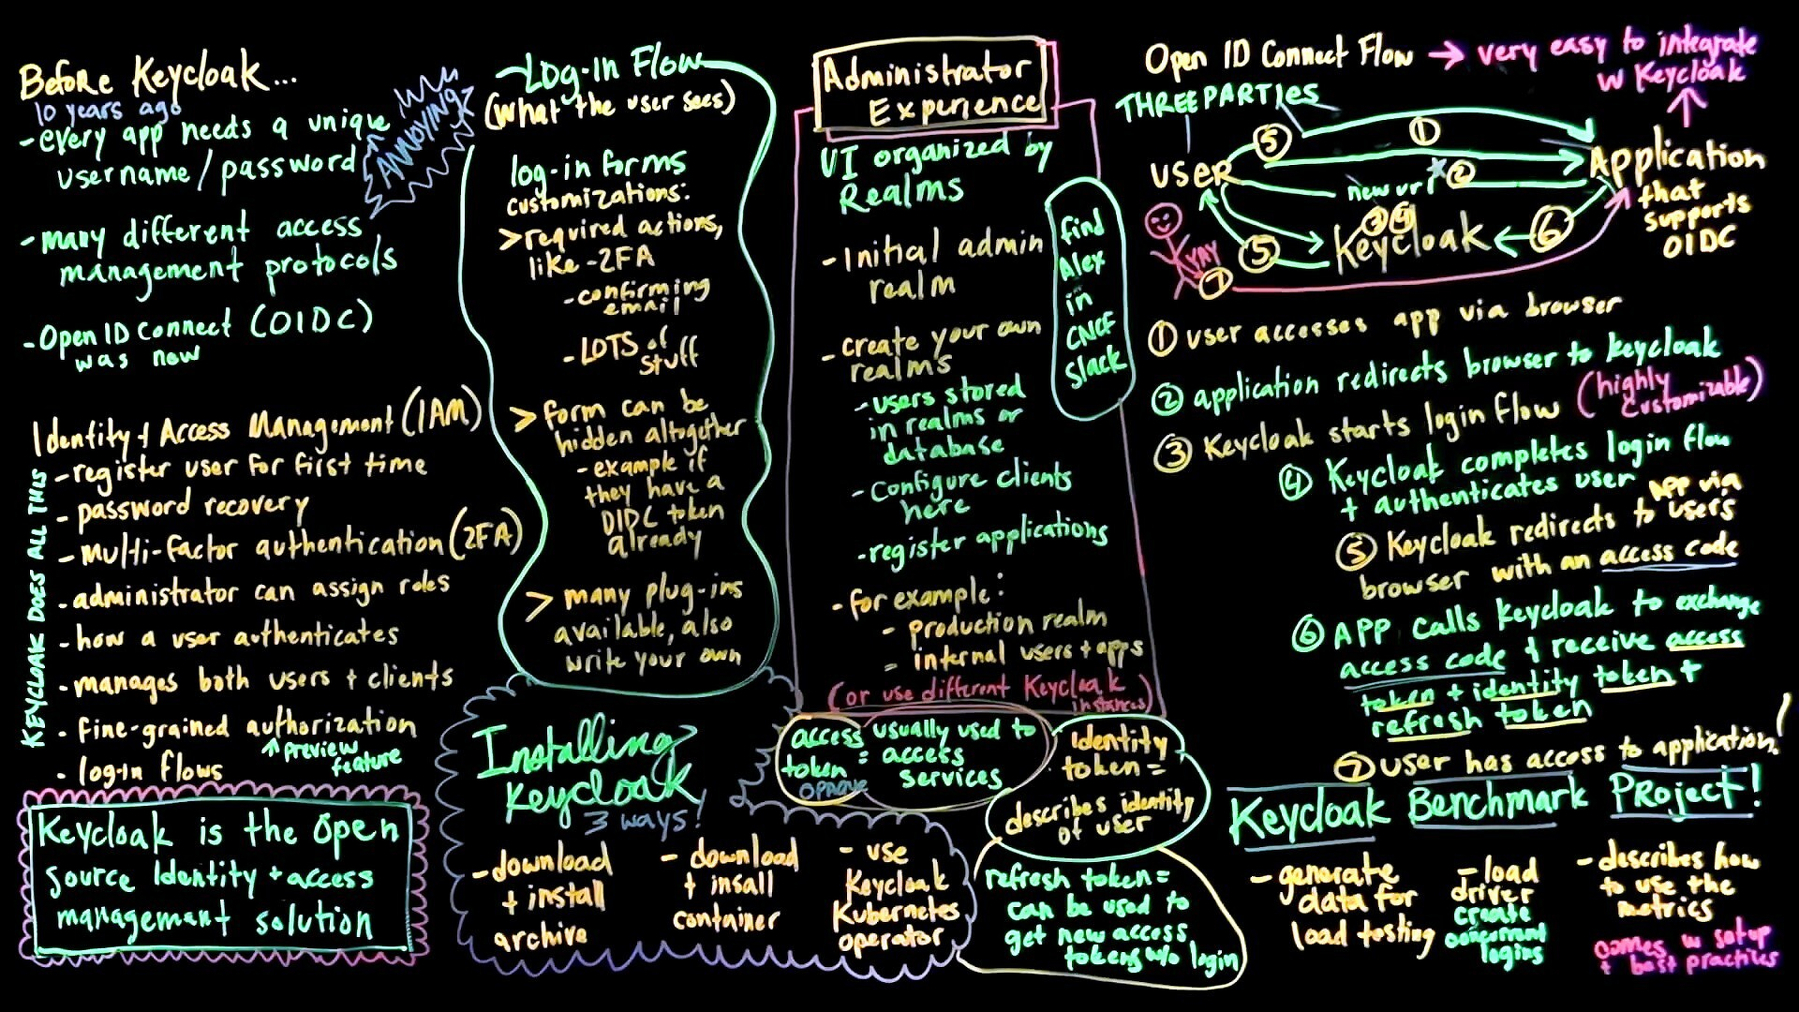 Before Keycloak...
10 years ago
- every app needs a unique
username/password
ANNOYING
- many different access
management protocols
- Open ID Connect (OIDC)
was new
Identity + Access Management (IAM)
KEYCLOAK DOES ALL THIS
- register user for first time
- password recovery
- multi-factor authentication (2FA)
- administrator can assign roles
- how a user authenticates
- manages both users + clients
- fine-grained authorization
↑ preview
feature
- log-in flows
Keycloak is the open
source Identity + access
management solution
Log-In Flow
(what the user sees)
log-in forms
customizations:
> required actions,
like - 2FA
- confirming
email
- LOTS of
stuff
> form can be
hidden altogether
- example if
they have a
OIDC token
already
> many plug-ins
available, also
write your own
Installing
Keycloak
3 ways!
- download
+ install
archive
- download
+ insall
container
- use
Keycloak
Kubernetes
operator
Administrator
Experience
UI organized by
Realms
- Initial admin
realm
- create your own
realms
- users stored
in realms or
database
- Configure clients
here
- register applications
- for example:
- production realm
- internal users + apps
(or use different Keycloak
instances)
find
Alex
in
CNCF
Slack
access
token
opaque
= usually used to
access
services
identity
token =
describes identity
of user
refresh token =
can be used to
get new access
tokens w/o login
Open ID Connect Flow → very easy to integrate
w Keycloak
THREE PARTIES
user
Application
that
supports
OIDC
new url
Keycloak
YAY
⑤
①
②
③ ④
⑤
⑥
⑦
① user accesses app via browser
② application redirects browser to keycloak
③ Keycloak starts login flow (highly
customizable)
④ Keycloak completes login flow
+ authenticates user
⑤ Keycloak redirects to app via users
browser with an access code
⑥ APP calls keycloak to exchange
access code + receive access
token + identity token +
refresh token
⑦ user has access to application!
Keycloak Benchmark Project!
- generate
data for
load testing
- load
driver
create
concurrent
logins
- describes how
to use the
metrics
comes w setup
+ best practices